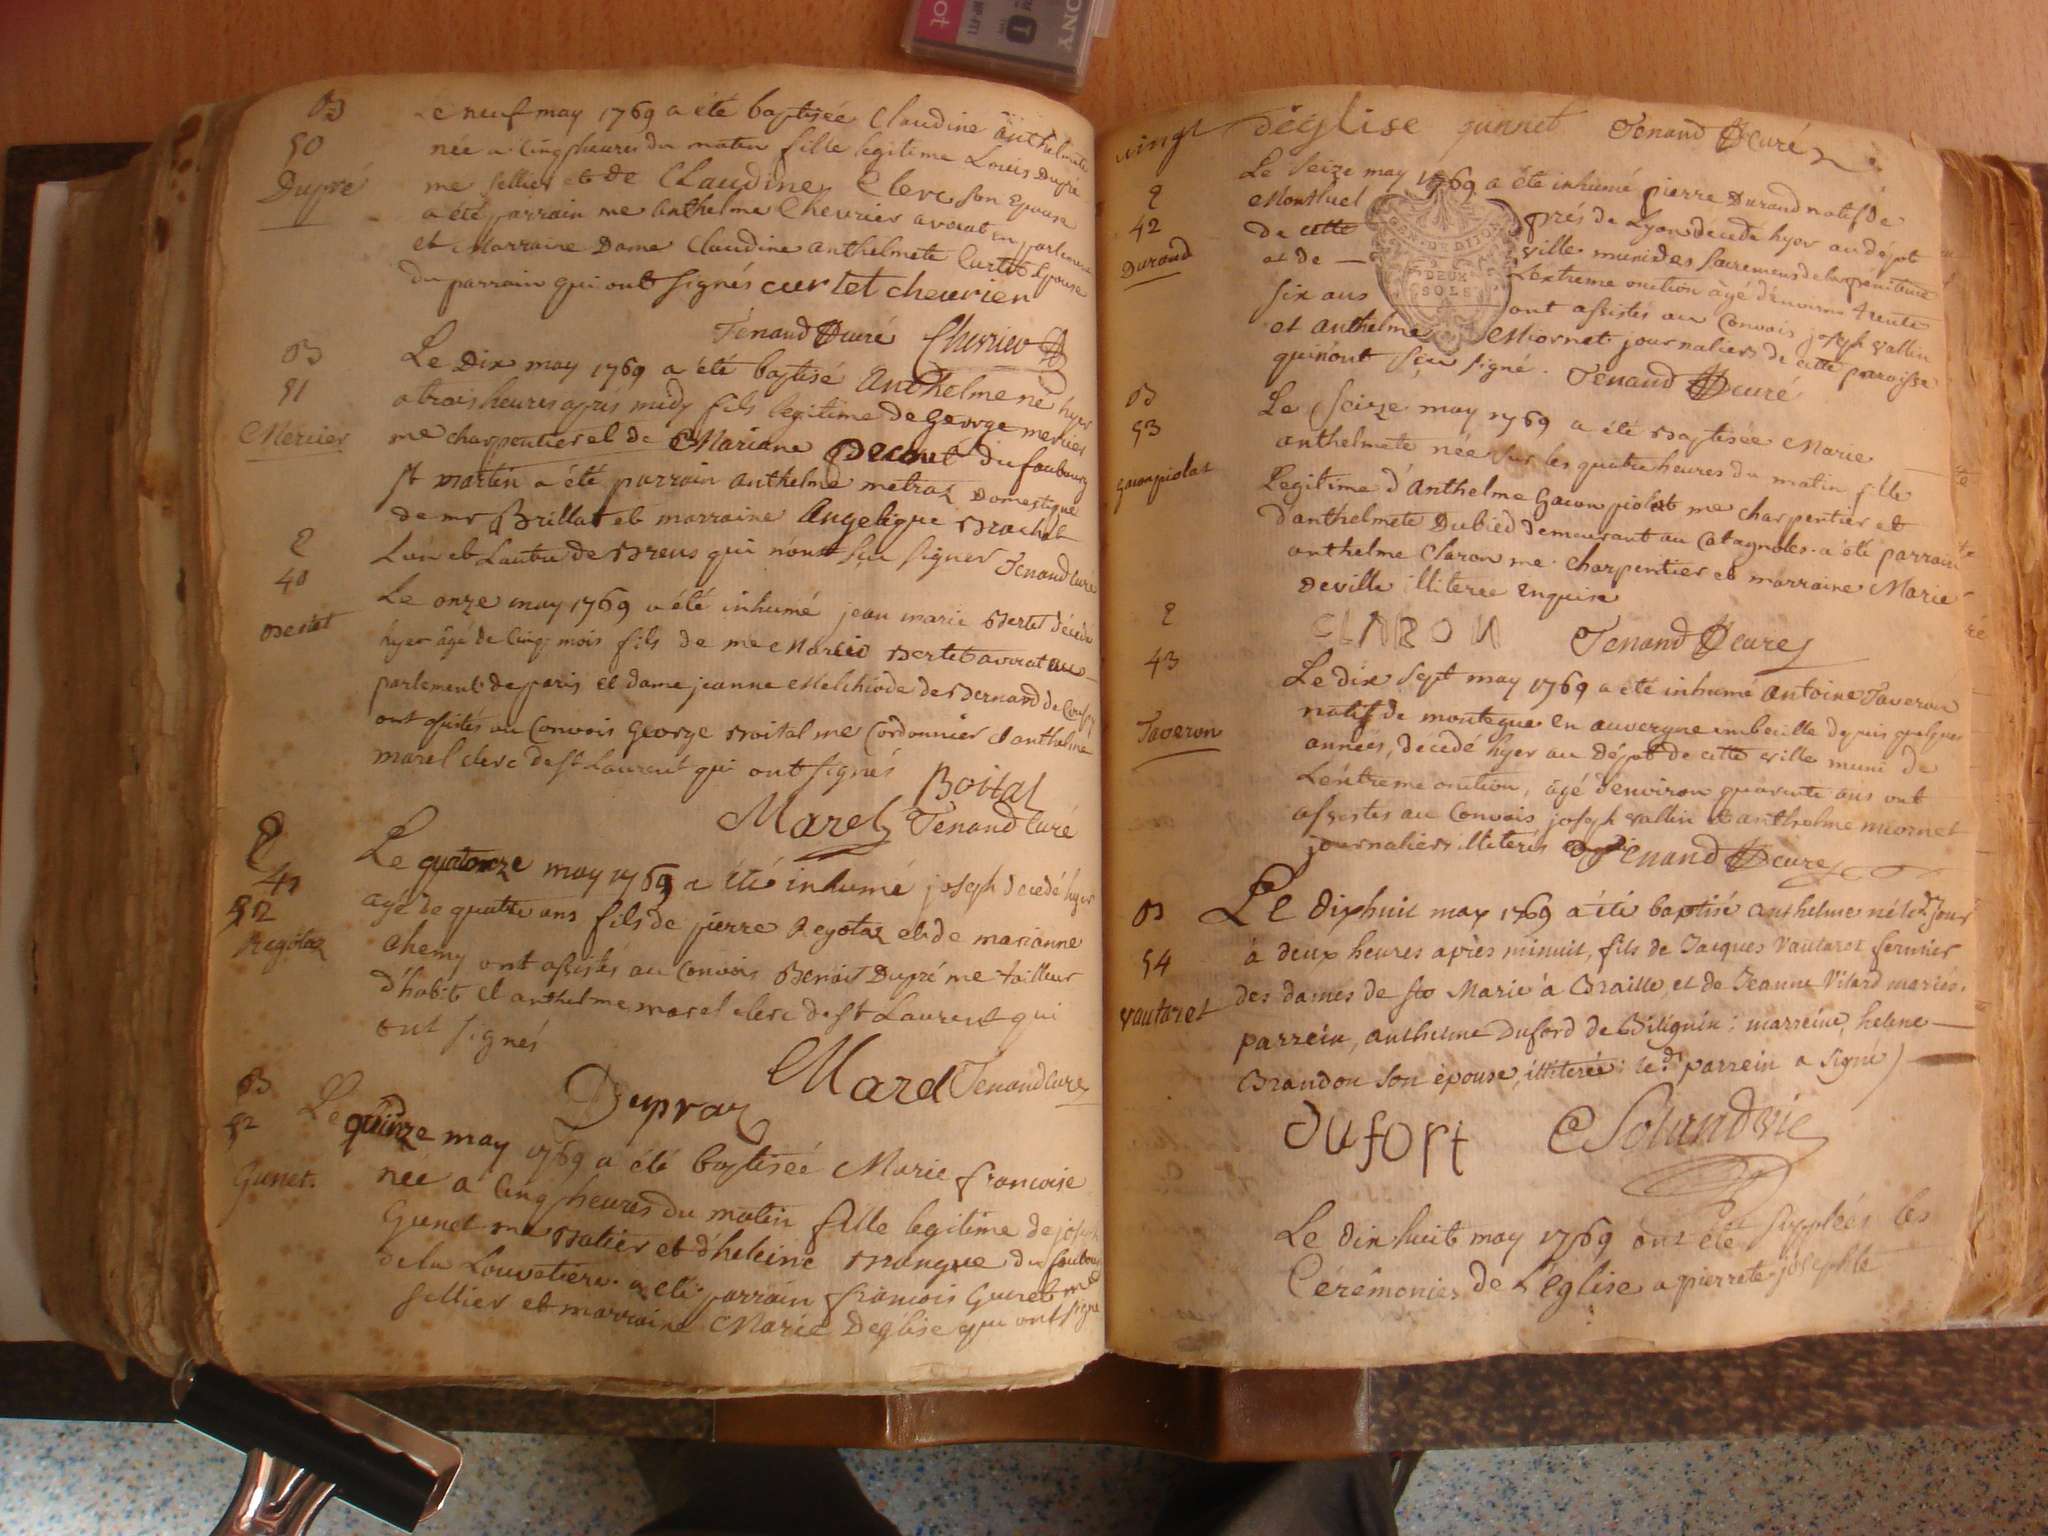 B
50
Dupré
Le neuf may 1769 a été baptisée Claudine Anthelmete
née a cinq heures du matin fille legitime Louis Dupré
me sellier et de Claudine Clerc son Epouse
a été parrain me anthelme Chevrier avocat en parlement
et Marraine Dame Claudine anthelmete Curtet Epouse
du parrain qui ont signés curtet chevrier
Tenand curé Chevrier
B
51
Mercier
Le Dix may 1769 a été baptisé Anthelme né hyer
a trois heures après midy fils legitime de George mercier
me charpentier et de Mariane du faubourg
st martin a été parrain anthelme metraz Domestique
de mr Brillat et marraine Angelique Brachet
Lun et Lautre de Brens qui n'ont sçu signer Tenand curé
40
Bertet
Le onze may 1769 a été inhumé jean marie Bertet décédé
hyer âgé de cinq mois fils de me Marie Bertet avocat au
parlement de paris et dame jeanne Melchiode de Bernard de
ont assistés au Convois George Boital me Cordonnier et anthelme
marel clerc de st Laurent qui ont signés
Boital
Marel Tenand Curé
41
52
Regotaz
Le quatorze may 1769 a été inhumé joseph decedé hyer
âgé de quatre ans fils de pierre Regotaz et de marianne
chemy ont assistés au Convois Benoit Dupré me tailleur
d'habit et anthelme marel clerc de st Laurent qui
ont signés
Marel Tenand Curé
Dupraz
B
52
Gunet.
Le quinze may 1769 a été baptiseé Marie francoise
née a cinq heures du matin fille legitime de joseph
Gunet me Batier et d'heleine Mangue du faubourg
de la Louvatiere a été parrain francois Gunet md
sellier et marraine Marie Deglise qui ont signé
vingt déglise gunnet Tenand curé
42
Durand
Le seize may 1769 a été inhumé pierre Durand natif de
Montluel prés de Lyon décédé hyer au dépot
de cette ville muni des sacremens de la pénitence
et de — L'extreme onction âgé d'environ trente
six ans ont assistés au Convois joseph vallin
et anthelme Miornet journaliers de cette paroisse
qui n'ont sçu signé. Tenand curé
GEN. DE DIJON
DEUX
SOLS
B
53
Gacon piolat
Le seize may 1769 a été Baptisée Marie
anthelmete née sur les quatre heures du matin fille
Legitime d'Anthelme Gacon piolat me charpentier et
d'anthelmete Dubied demeurant au Catagnoles. a été parrain
anthelme Claron me. Charpentier et marraine Marie
Deville illiteree Enquise
CLARON Tenand curé
43
Taveron
Le dix sept may 1769 a été inhumé Antoine Taveron
natif de montegue en auvergne imbecille depuis quelques
années, décédé hyer au Dépot de cette ville muni de
L'extreme onction, âgé d'environ quarante ans ont
assistés au Convois joseph vallin et anthelme miornet
journaliers illiterés Tenand curé
B
54
vautaret
Le dixhuit may 1769 a été baptisé anthelme né led. jour
à deux heures après minuit, fils de Jacques Vautaret fermier
des dames de ste Marie à Braille, et de Jeanne Vilard mariés.
parrein, anthelme Duford de Billignin; marreine, helene —
Brandon son épouse, illiterée: led. parrein a signé /
dufort
Le dix huit may 1769 ont été supplées les
Cérémonies de L'église a pierrete josephte
SONY